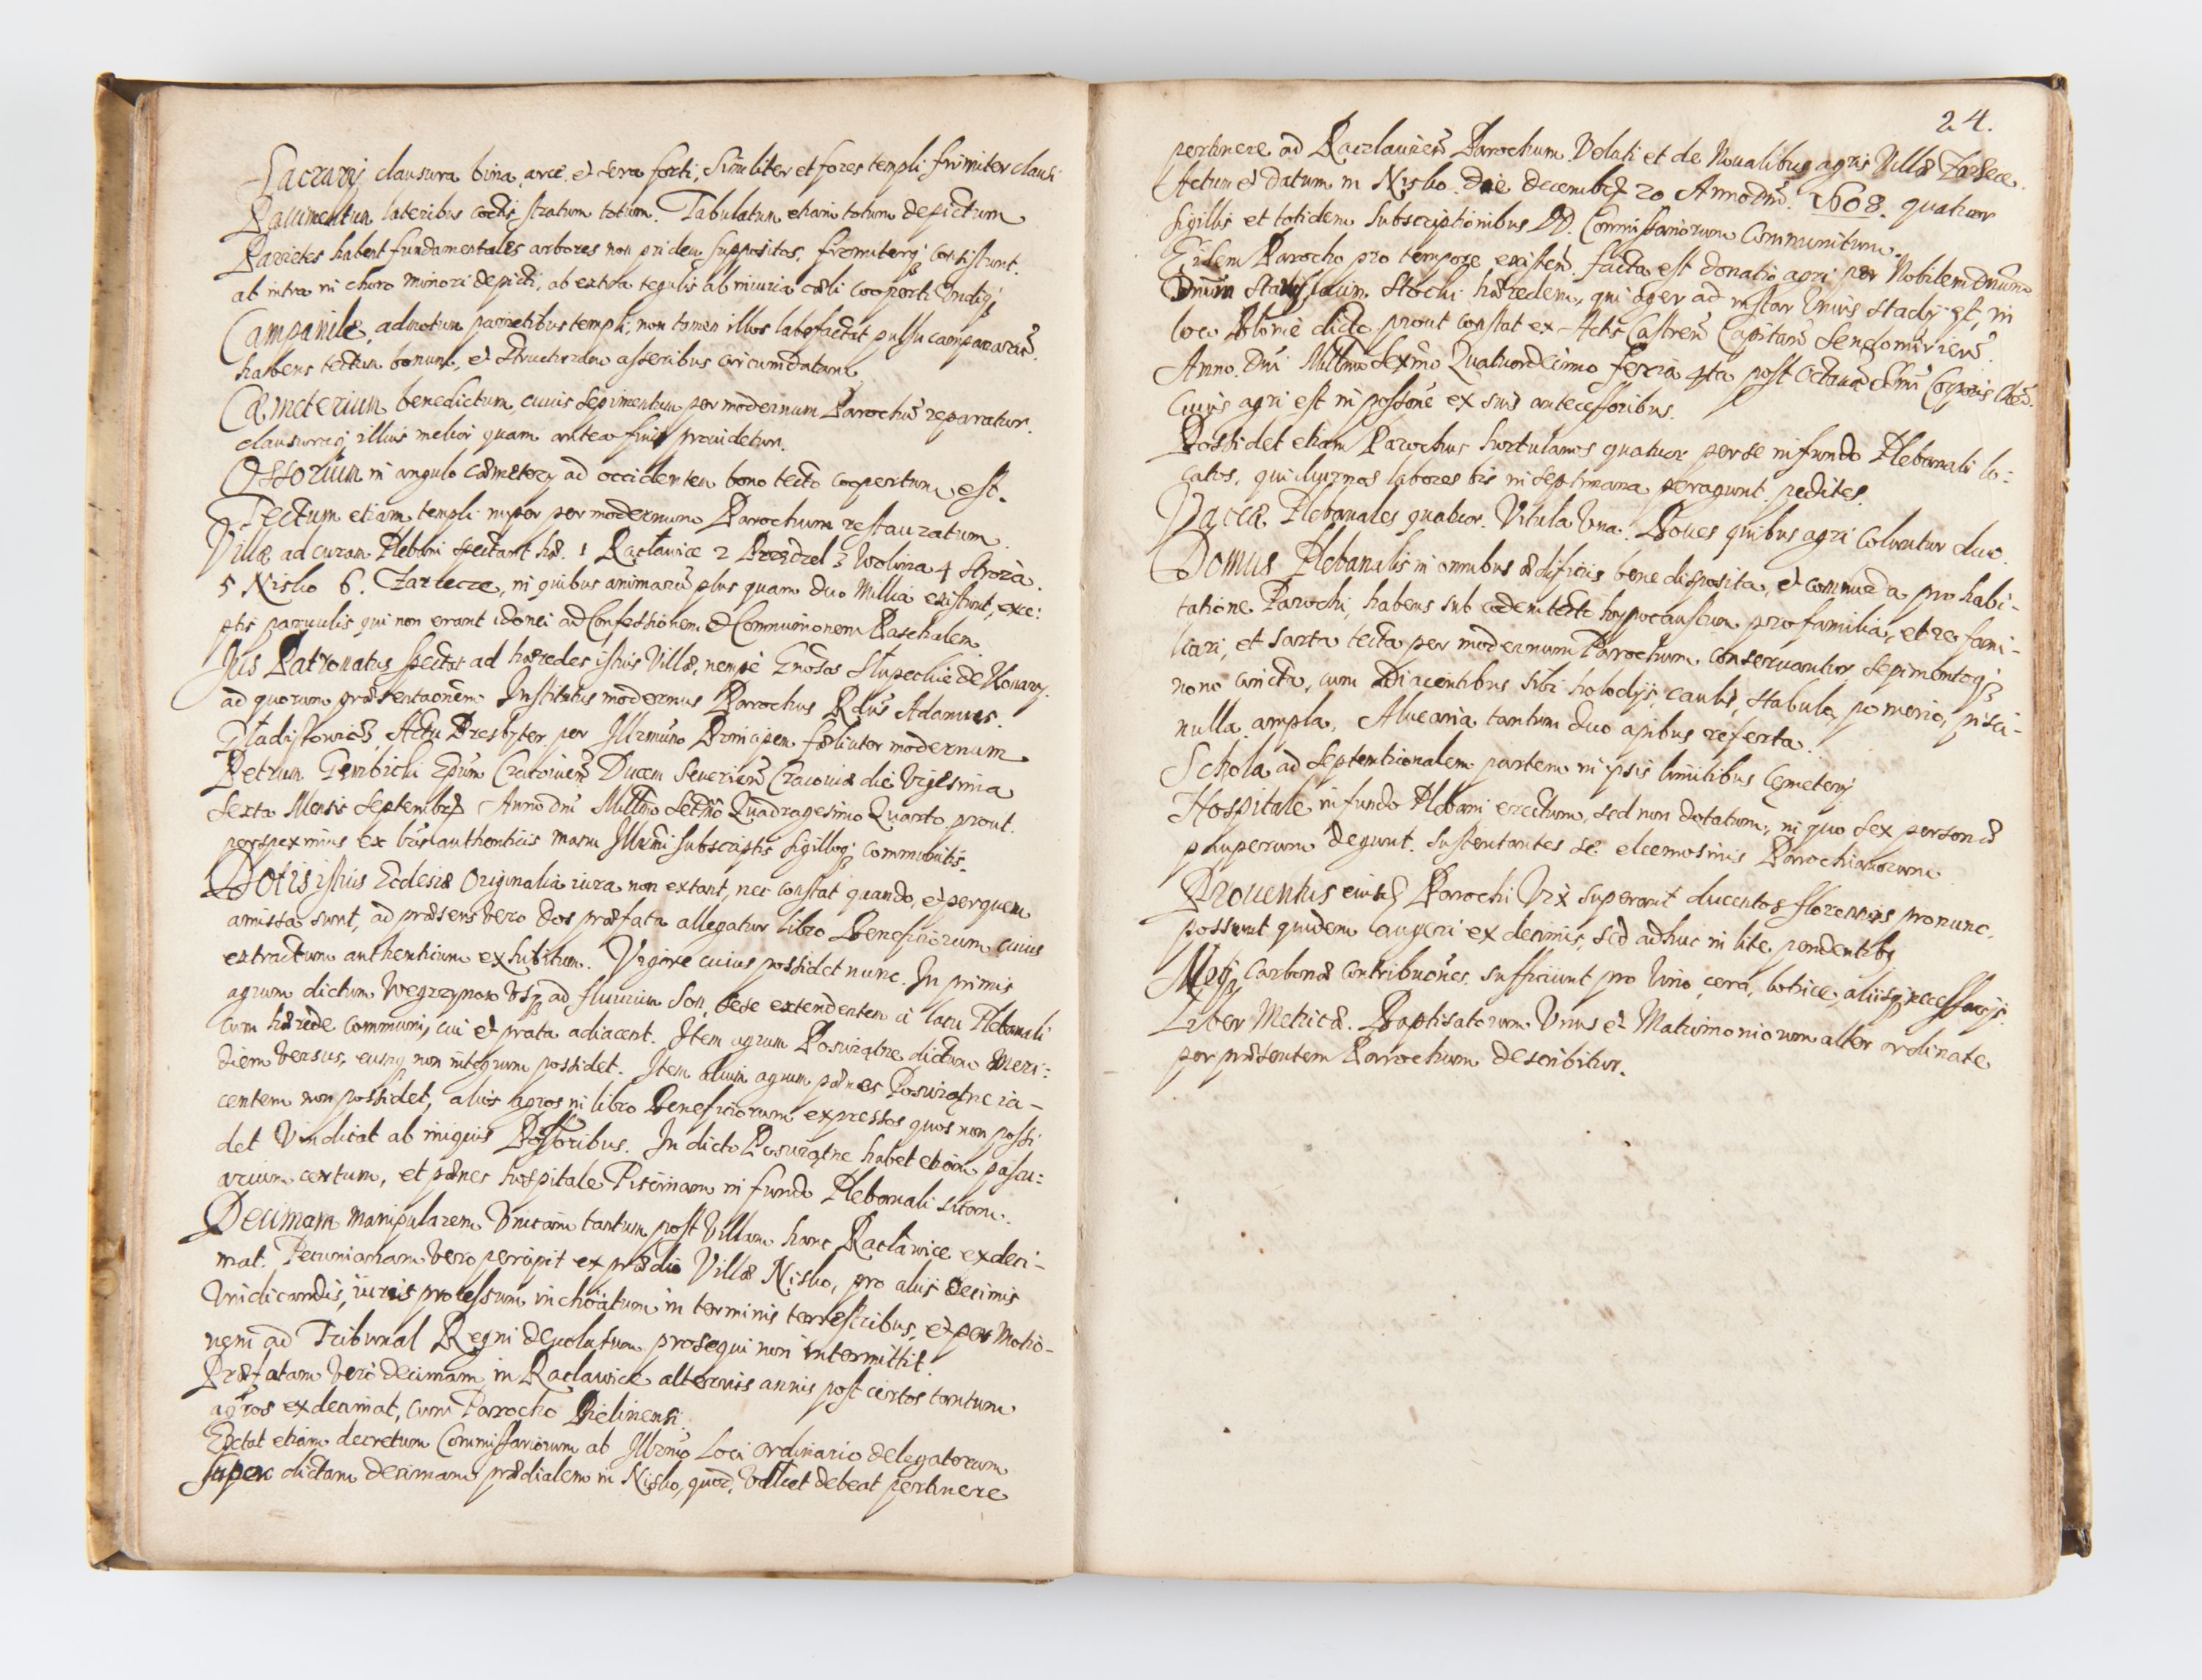 Sacrarij clausura bina, arcæ et sera forti, Similiter et fores templi firmiter clausi
Pauimentum lateribus coctis stratum totum. Tabulatum etiam totum depictum
Parietes habent fundamentales arbores non pridem suppositos, firmiterq consistunt.
ab intra in choro minori depicti, ab extra tegulis ab iniuria cœli cooperti Undiq
Campanile, admotum parietibus templi, non tamen illos labefactat pulsu campanarũ.
habens tectum bonum, et structuram asseribus circumdatam
Cæmeterium benedictum, cuius sepimentum per modernum Parochũ reparatur.
clausuraq illius melior quam antea fuit prouidetur.
Ossorium in angulo cæmeterij ad occidentem bono tecto coopertum est.
Tectum etiam templi nuper per modernum Parochum restauratum.
Villæ ad curam Plebani spectant hæ. 1 Racławice 2 Przędzel 3 Wolina 4 Moza.
5 Nisko 6. Zarzecze, in quibus animarũ plus quam duo Millia existunt, exce:
ptis paruulis qui non erant idonei ad Confessionem et Communionem Paschalem.
Jus Patronatus spectat ad hæredes istius Villæ, nempè Gnosos Słupeckie de Konary.
ad quorum præsentaonem Institutus modernus Parochus Rdus Adamus.
Gładyszowicz, Actu Presbyter per Illrmum Principem fœliciter modernum
Petrum Gembicki Epum Cracouien Ducem Seuerien Cracouiæ die Vigesima
sexta Mensis Septembr Anno dni Millmo Sextmo Quadragesimo Quarto prout.
perspeximus ex lris authenticis manu Illrmi subscriptis sigilloq communitis.
Dotis istius Ecclesiæ Originalia iura non extant, nec constat quando, et per quem
amissa sunt, ad præsens vero dos præfata allegatur libro Beneficiorum cuius
extractum authenticum exhibitum. Vigore cuius possidet nunc. In primis
agrum dictum Węgrzynow Usq ad fluuium San, sese extendentem à lacu Plebanali
cum hærede communi, cui et prata adiacent. Item agrum Poswiątne dictum Meri:
diem versus, eumq non integrum possidet. Item alium agrum pænes Poswiątne ia-
centem non possidet, alios agros in libro Beneficiorum expressos quos non possi
det Vindicat ab iniquis Possessoribus. In dicto Poswiątne habet etiam pascu:
arium certum, et pænes hospitale Piscinam in fundo Plebanali sitam.
Decimam manipularem Unicam tantum post Villam hanc Racławice exdeci-
mat. Pecuniariam vero percipit ex prædio Villæ Nisko, pro alijs decimis
Vindicandis, iuris processum inchoatum in terminis terrestribus, et per Motio-
nem ad Tribunal Regni deuolutum prosequi non intermittit.
Præfatam verò decimam in Racławice alternis annis post certos tantum
agros exdecimat, cum Parocho Bielinensi.
Extat etiam decretum Commissariorum ab Illrmo Loci ordinario delegatorum
super dictam decimam prædialem in Nisko, quod, Valeat debeat pertinere
24.
pertinere ad Raczlauien Parochum. Veluti et de Noualibus agris Villæ Zalesie.
Actum et datum in Nisko. Die decembr 20 Anno dni. 1608. quatuor
sigillis et totidem subscriptionibus DD. Commissariorum Communitum.
Eidem Parocho pro tempore existen. facta est donatio agri per Nobilem Dnum
Dnum Stanislaum. Stocki hæredem, qui ager ad instar Unius stadij est, in
loco Błonie dicto prout constat ex Actis Castren Capitan Sendomirien.
Anno. Dni Millmo Sexmo Quatuordecimo feria 4ta post Octauã Ssmi Corporis Chri.
Cuius agri est in possone ex suis antecessoribus.
Possidet etiam Parochus hortulanos quatuor per se in fundo Plebanali lo:
catos, qui diurnos labores bis in septimana peragunt pedites.
Vaccæ Plebanales quatuor. Vitula Una. Boues quibus agri Coluntur duo.
Domus Plebanalis in omnibus ædificiis bene disposita, et commoda pro habi-
tatione Parochi, habens sub eodem tecto hypocaustum pro familia, et re fami-
liari, et sarta tecta per modernum Parochum conseruantur, sepimentoq
nono cincta, cum adiacentibus sibi holodijs, caulis, stabulo, pomerio, pisci-
nulla ampla, Aluearia tantum duo apibus referta.
Schola ad septentrionalem partem in ipsis limitibus Cæmeterij
Hospitale in fundo Plebani erectum, sed non dotatum, in quo sex personæ
pauperum degunt. sustentantes se eleemosinis Parochianorum
Prouentus eiusd Parochi Vix superant ducentos florenos pro nunc.
possunt quidem augeri ex decimis, sed adhuc in lite pendentibq
Carbonæ contribuones. sufficiunt pro Vino, cera, lotrice, aliisq necessarijs.
Liber Metricæ. Baptisatorum Unus et Matrimoniorum alter ordinate
per præsentem Parochum describitur.